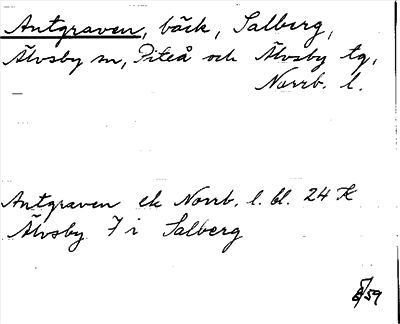 Antgraven, bäck, Salberg,
Älvsby sn, Piteå och Älvsby tg,
Norrb. l.
Antgraven ek Norrb. l. bl. 24 K
Älvsby 7 i Salberg
/59